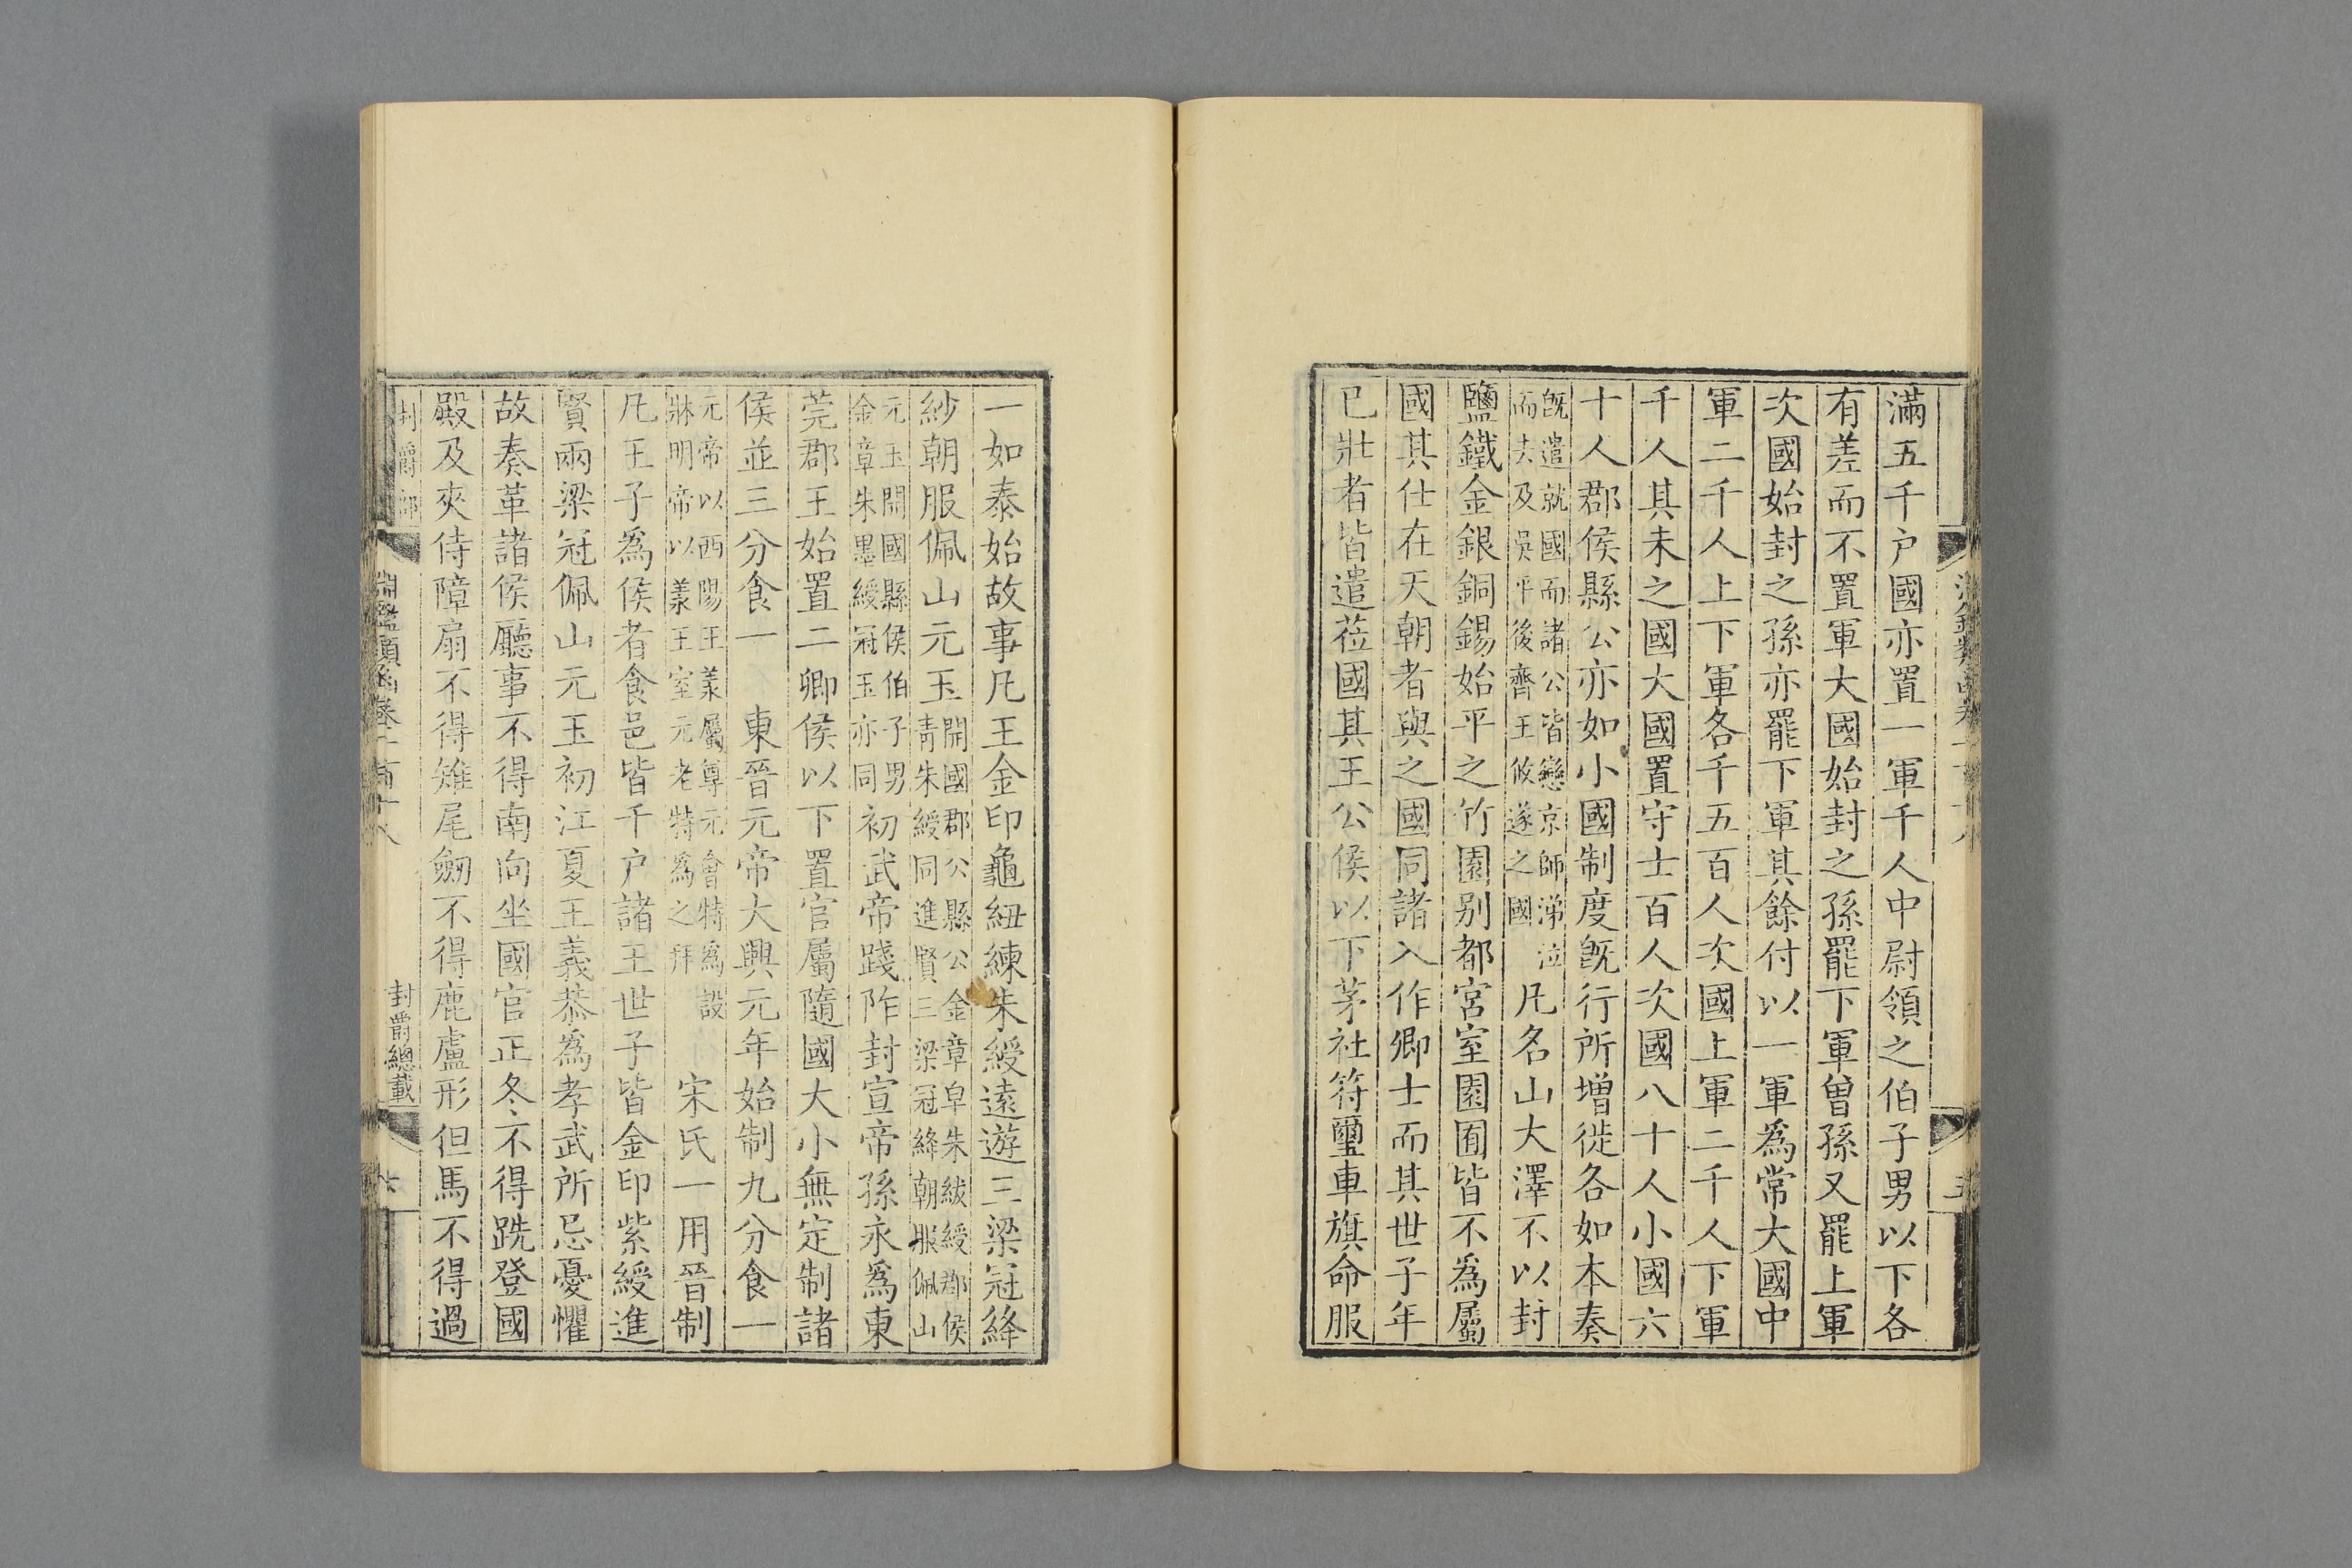 滿五千户國亦置一軍千人中尉領之伯子男以下各
有差而不置軍大國始封之孫罷下軍曾孫又罷上軍
次國始封之孫亦罷下軍其餘付以一軍爲常大國中
軍二千人上下軍各千五百人次國上軍二千人下軍
千人其未之國大國置守士百人次國八十人小國六
十人郡侯縣公亦如小國制度旣行所增徙各如本奏
旣遣就國而諸公皆戀京師涕泣
而去及吳平後齊王攸遂之國
凡名山大澤不以封
鹽鐵金銀銅錫始平之竹園别都宮室園囿皆不爲屬
國其仕在天朝者與之國同諸入作卿士而其世子年
已壯者皆遣莅國其王公侯以下茅社符璽車旗命服
一如泰始故事凡王金印龜紐練朱綬遠遊三梁冠絳
紗朝服佩山元玉
開國郡公縣公金章皁朱紱綬郡侯
靑朱綬同進賢三梁冠絳朝服佩山
元玉開國縣侯伯子男
金章朱墨綬冠玉亦同
初武帝踐阼封宣帝孫永爲東
莞郡王始置二卿侯以下置官屬隨國大小無定制諸
侯並三分食一
東晉元帝大興元年始制九分食一
元帝以西陽王羕屬尊元會特爲設
牀明帝以羕王室元老特爲之拜
宋氏一用晉制
凡王子爲侯者食邑皆千户諸王世子皆金印紫綬進
賢兩梁冠佩山元玉初江夏王義恭爲孝武所忌憂懼
故奏革諸侯廳事不得南向坐國官正冬不得跣登國
殿及夾侍障扇不得雉尾劒不得鹿盧形但馬不得過
封爵部
淵鑑類函卷一百十八
封爵總載
六